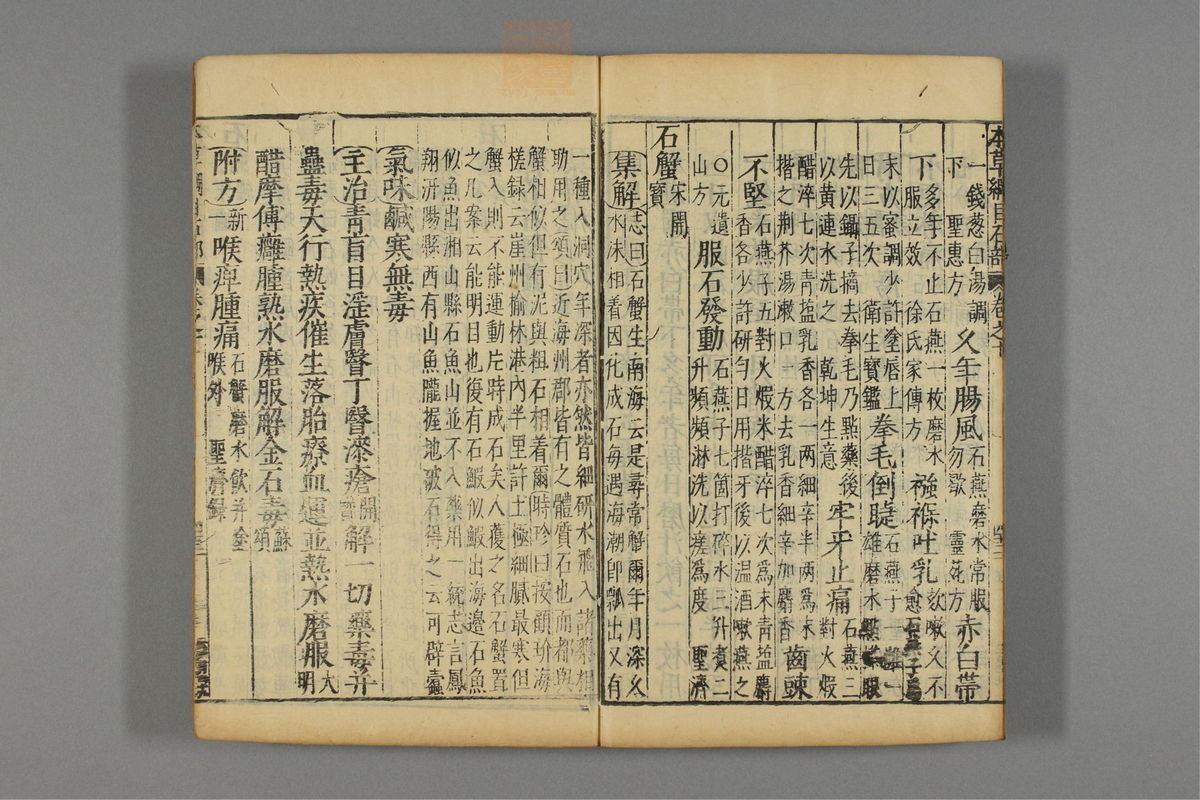 本草綱目石部 卷之十
一錢葱白湯調下 聖惠方 久年腸風 石燕磨水常服勿歇 靈苑方 赤白帶
下 多年不止石燕一枚磨水服立效 徐氏家傳方 襁褓吐乳 欬嗽久不愈石燕子
末以蜜調少許塗唇上日三五次 衛生寶鑑 拳毛倒睫 石燕子一雌一雄磨水點搽眼
先以鑷子摘去拳毛乃點藥後以黃連水洗之 乾坤生意 牢牙止痛 石燕三對火煆
醋淬七次青盐乳香各一兩細辛半兩爲末揩之荆芥湯嗽口一方去乳香細辛加麝香 齒疎
不堅 石燕子五對火煆米醋淬七次爲末青盐麝香各少許研勻日用揩牙後以温酒嗽燕之
〇元遺山方 服石發動 石燕子七箇打碎水三升煑二升頻頻淋洗以瘥爲度 聖濟
石蟹 宋開寶
集解 志曰石蟹生南海云是尋常蟹爾年月深久水沫相着因化成石每遇海潮卽飄出又有
一種入洞穴年深者亦然皆細研水飛入諸藥相助用之頌曰近海州郡皆有之體質石也而都與
蟹相似但有泥與粗石相着爾時珍曰按顧玠海槎録云崖州榆林港內半里許土極細膩最寒但
蟹入則不能運動片時成石矣人獲之名石蟹置之几案云能明目也復有石鰕似鰕出海邊石魚
似魚出湘山縣石魚山並不入藥用一統志言鳳翔汧陽縣西有山魚隴掘地破石得之云可辟蠹
氣味 鹹寒無毒
主治 青盲目淫膚瞖丁瞖漆瘡 開寶 解一切藥毒并
蠱毒天行熱疾催生落胎療血運並熱水磨服 大明
醋摩傅癰腫熟水磨服解金石毒 蘇頌
附方 新一 喉痺腫痛 石蟹磨水飲并塗喉外 聖濟録